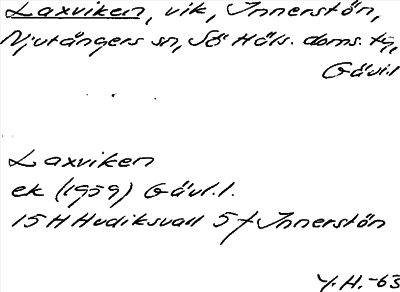 Laxviken, vik, Innerstön,
Njutångers sn, Sö Häls. doms. tg,
Gävl.l
Laxviken
ek (1959) Gävl.l.
15H Hudiksvall 5f Innerstön
Y.H.-63